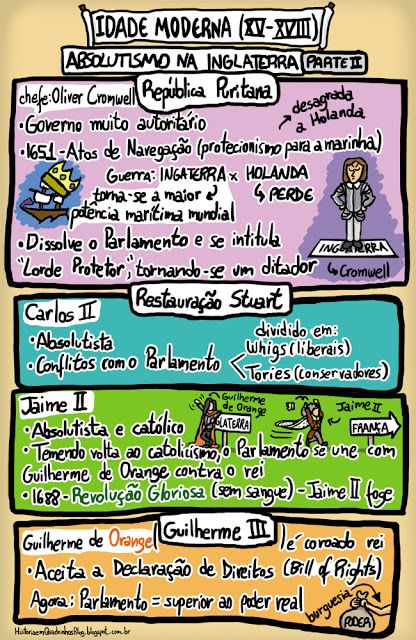 IDADE MODERNA (XV-XVIII)
ABSOLUTISMO NA INGLATERRA PARTE II
República Puritana
chefe: Oliver Cromwell
• Governo muito autoritário
desagrada a Holanda
• 1651 - Atos de Navegação (protecionismo para a marinha)
Guerra: INGATERRA x HOLANDA
↳ PERDE
torna-se a maior
potência marítima mundial
INGLATERRA
↳ Cromwell
• Dissolve o Parlamento e se intitula
"Lorde Protetor", tornando-se um ditador
Restauração Stuart
Carlos II
• Absolutista
• Conflitos com o Parlamento
dividido em:
Whigs (liberais)
Tories (conservadores)
Jaime II
Guilherme de Orange
GLATERRA
Jaime II
FRANÇA
• Absolutista e católico
• Temendo volta ao catolicismo, o Parlamento se une com
Guilherme de Orange contra o rei
• 1688 - Revolução Gloriosa (sem sangue) - Jaime II foge
Guilherme de Orange (Guilherme III) é coroado rei
• Aceita a Declaração de Direitos (Bill of Rights)
Agora: Parlamento = superior ao poder real
burguesia
PODER
HistoriaemQuadrinhosBlog.blogspot.com.br